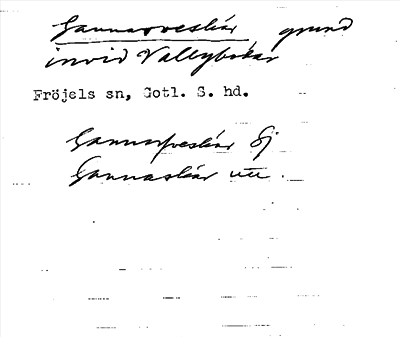 Gannarveskär grund
invid Vallybokar
Fröjels sn, Gotl. S. hd.
Gannarveskär Ej
Gannaskär utt.